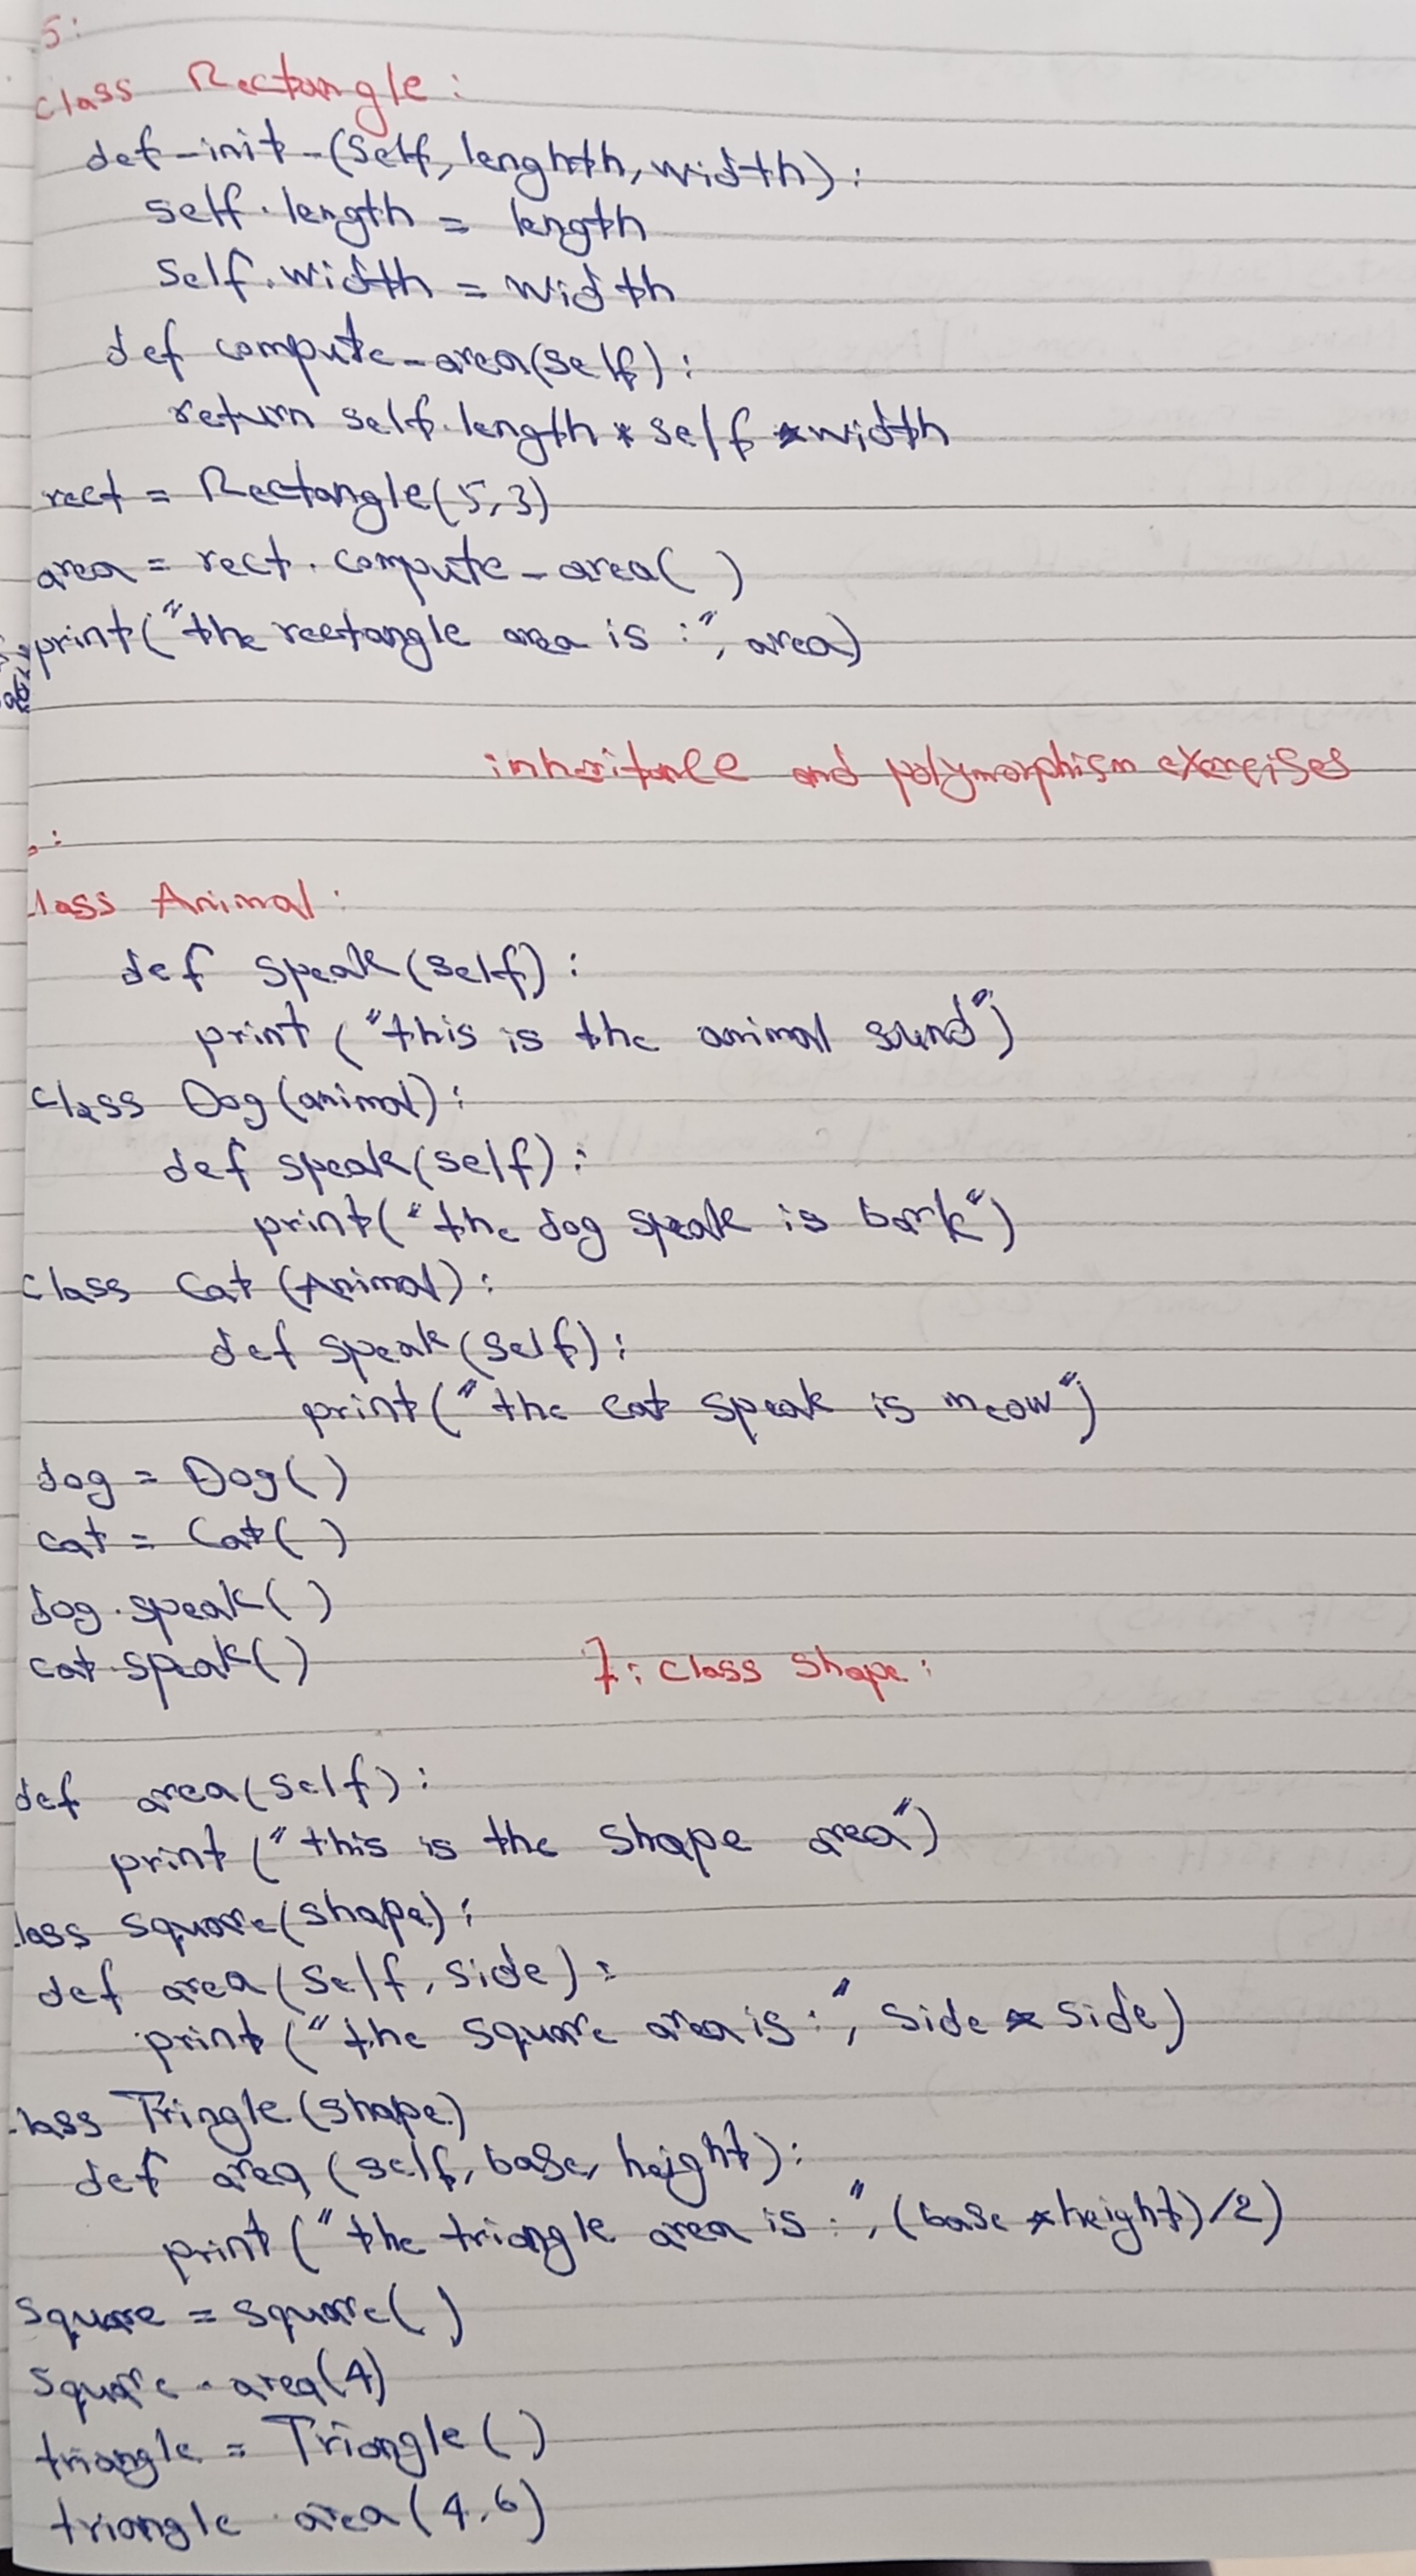 5:
class Rectangle:
def_init_(self, lenghth, width):
self.length = length
self.width = width
def compute_area(self):
return self.length * self * width
rect = Rectangle(5,3)
area = rect.compute_area( )
print("the rectangle area is :", area)
inheritance and polymorphism exercises
:
lass Animal:
def speak(self):
print ("this is the animal sund")
class Dog(animal):
def speak(self):
print("the dog speak is bark")
class Cat (Animal):
def speak(self):
print("the cat speak is meow")
dog = Dog()
cat = Cat()
dog.speak()
cat.speak()
7: class Shape:
def area(self):
print ("this is the shape area")
lass square(shape):
def area(self, side):
print ("the square area is :", side * side)
lass Tringle(shape)
def area (self, base, height):
print ("the triangle area is :", (base * height)/2)
square = square( )
square.area(4)
triangle = Triangle()
triangle.area(4,6)